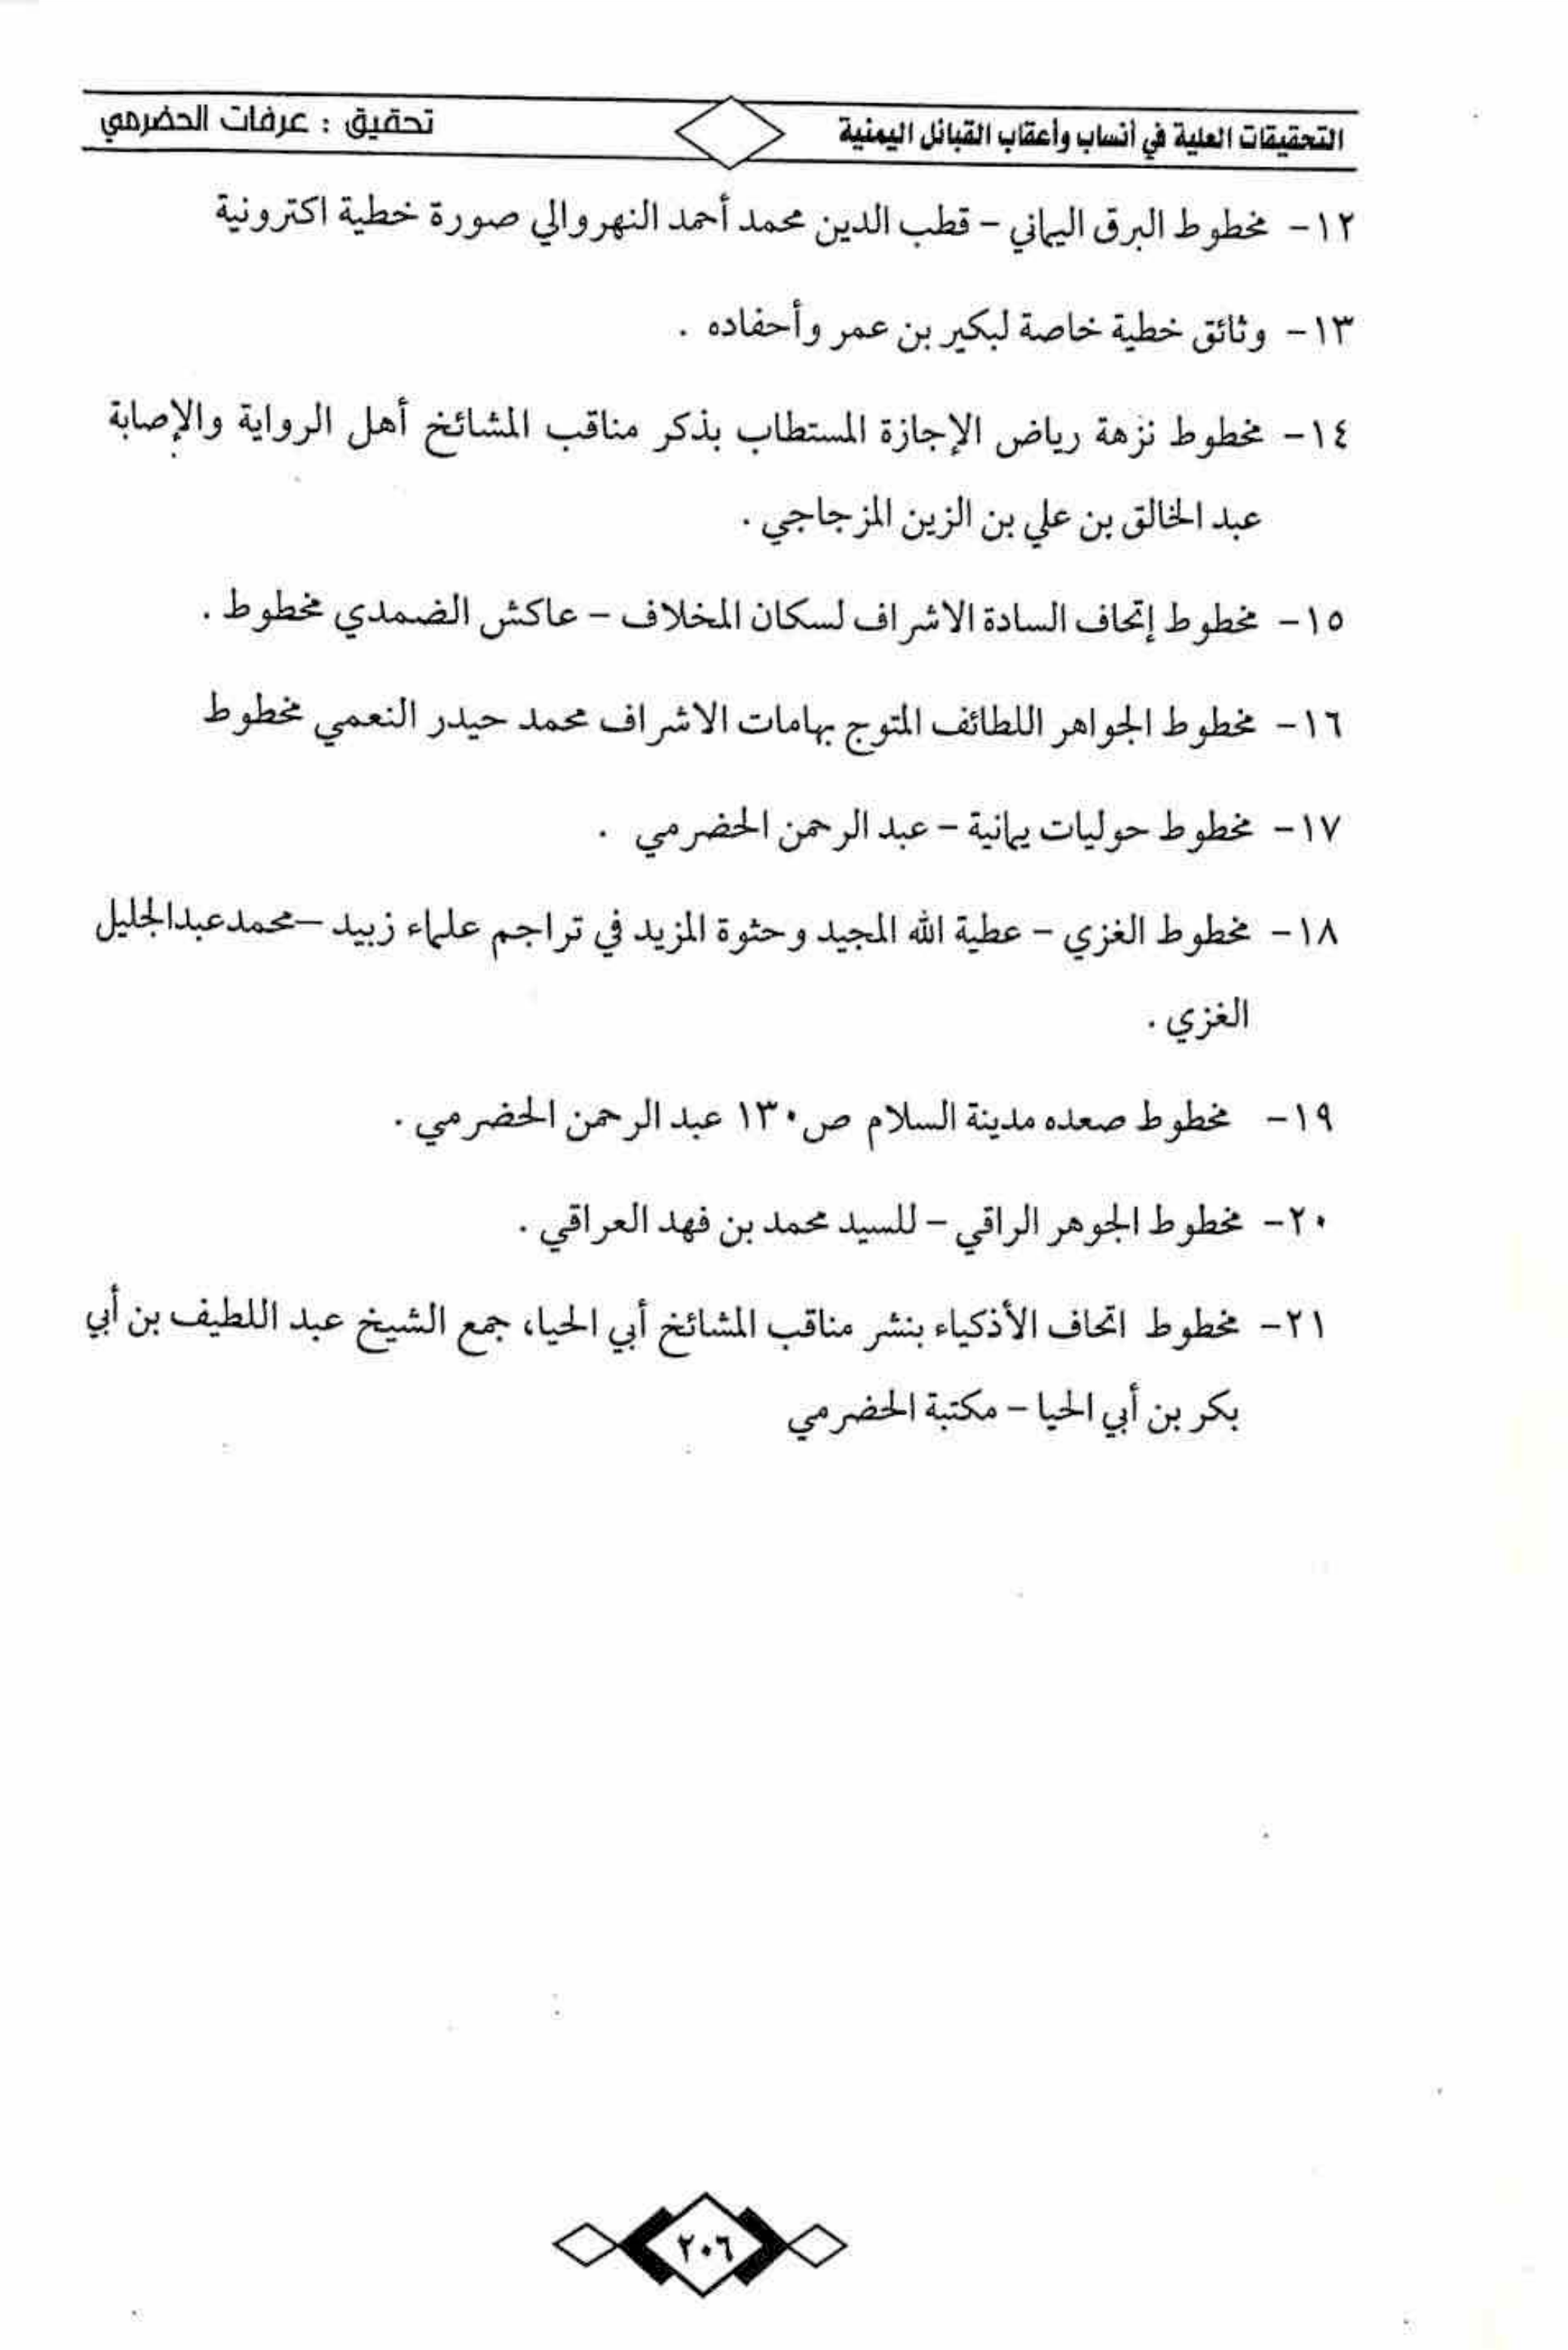 التحقيقات العلية في أنساب وأعقاب القبائل اليمنية
تحقيق : عرفات الحضرمي
١٢- مخطوط البرق اليماني - قطب الدين محمد أحمد النهروالي صورة خطية اكترونية
١٣- وثائق خطية خاصة لبكير بن عمر وأحفاده .
١٤- مخطوط نزهة رياض الإجازة المستطاب بذكر مناقب المشائخ أهل الرواية والإصابة
عبد الخالق بن علي بن الزين المزجاجي .
١٥- مخطوط إتحاف السادة الاشراف لسكان المخلاف - عاكش الضمدي مخطوط .
١٦- مخطوط الجواهر اللطائف المتوج بهامات الاشراف محمد حيدر النعمي مخطوط
١٧- مخطوط حوليات يمانية - عبد الرحمن الحضرمي .
١٨- مخطوط الغزي - عطية الله المجيد وحثوة المزيد في تراجم علماء زبيد –محمدعبدالجليل
الغزي .
١٩- مخطوط صعده مدينة السلام ص١٣٠ عبد الرحمن الحضرمي .
٢٠- مخطوط الجوهر الراقي - للسيد محمد بن فهد العراقي .
٢١- مخطوط اتحاف الأذكياء بنشر مناقب المشائخ أبي الحيا، جمع الشيخ عبد اللطيف بن أبي
بكر بن أبي الحيا - مكتبة الحضرمي
٢٠٦